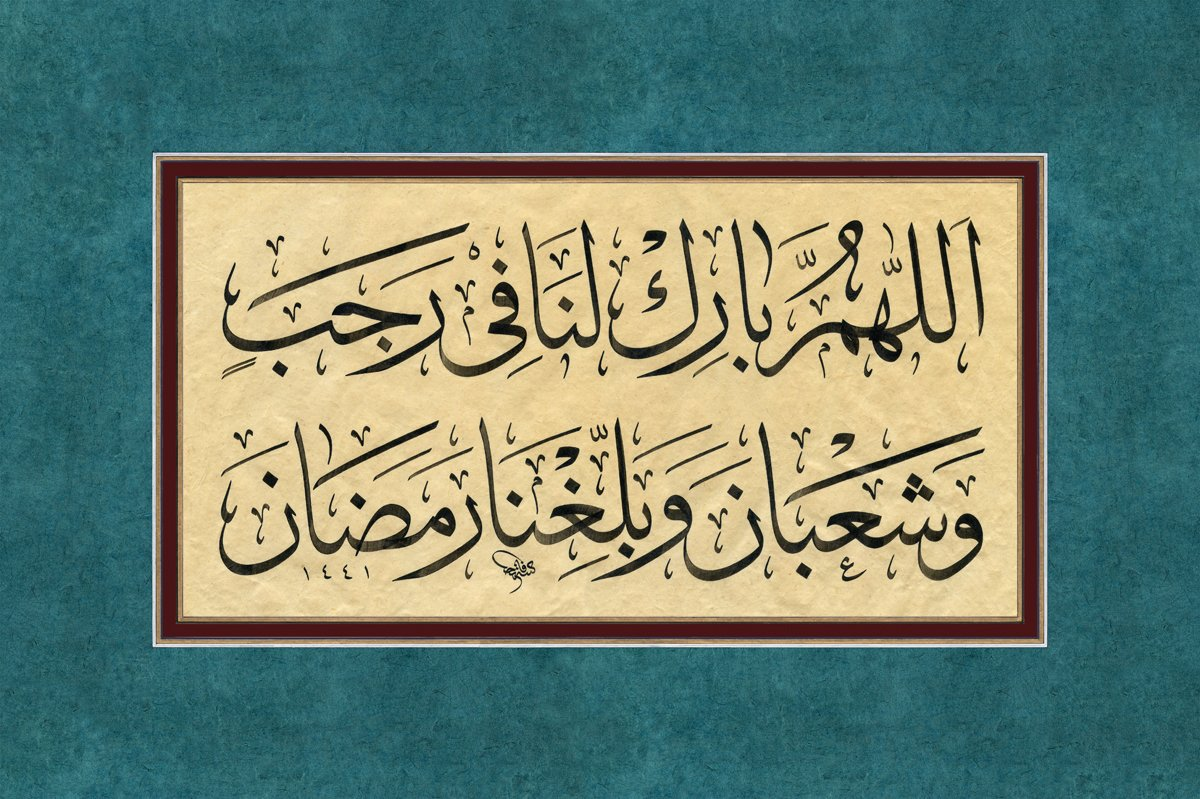 اَللّٰهُمَّ بَارِكْ لَنَا فِى رَجَبٍ
وَشَعْبَانَ وَبَلِّغْنَا رَمَضَانَ
١٤٤١